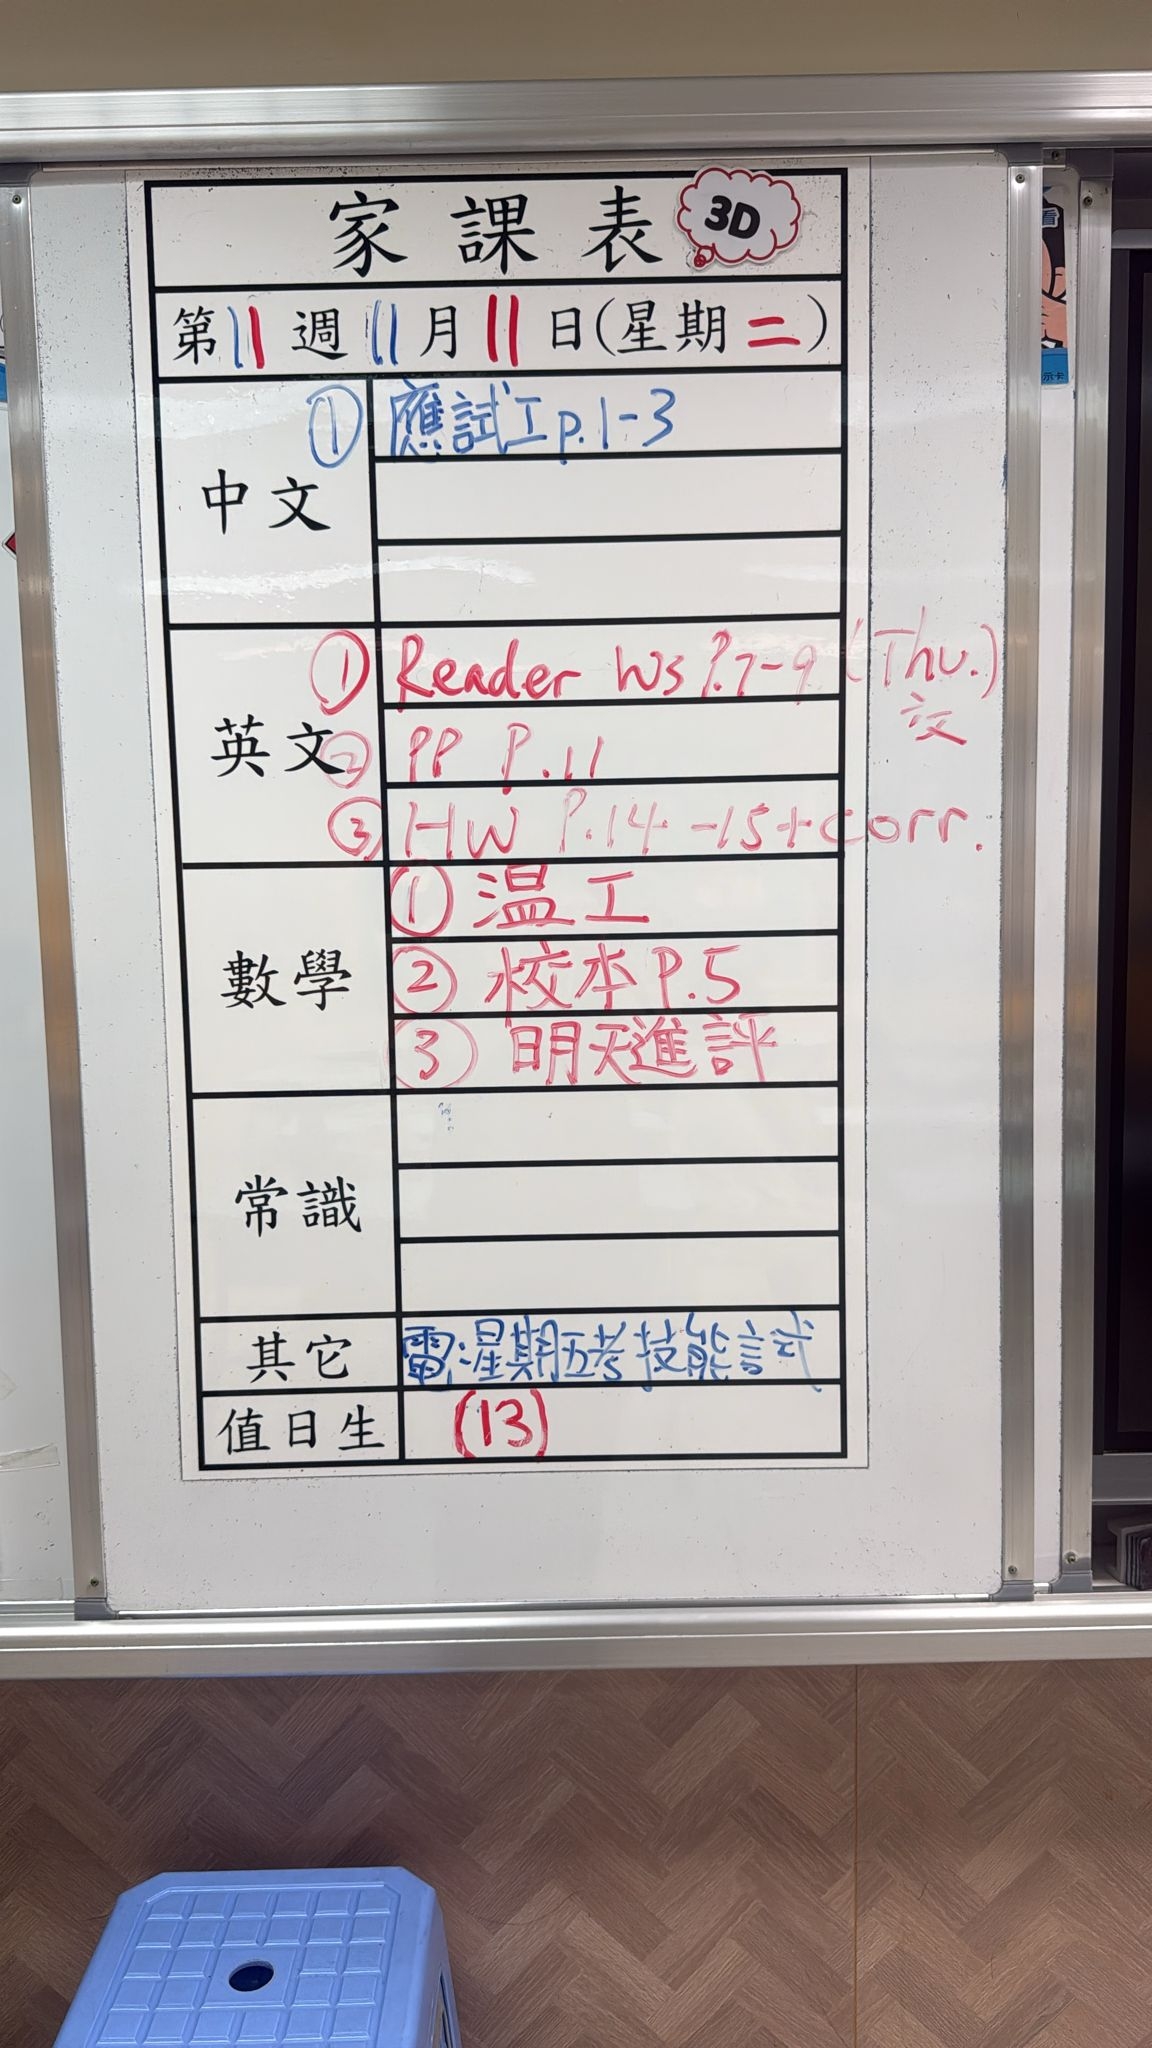 家課表 3D
第11週11月11日(星期二)
中文
① 應試工p.1-3
英文
① Reader WS P.7-9 (Thu.)
交
② PP P.11
③ HW P.14-15+corr.
數學
① 温工
② 校本P.5
③ 明天進評
常識
其它
電:星期五考技能試
值日生
(13)
看
示卡